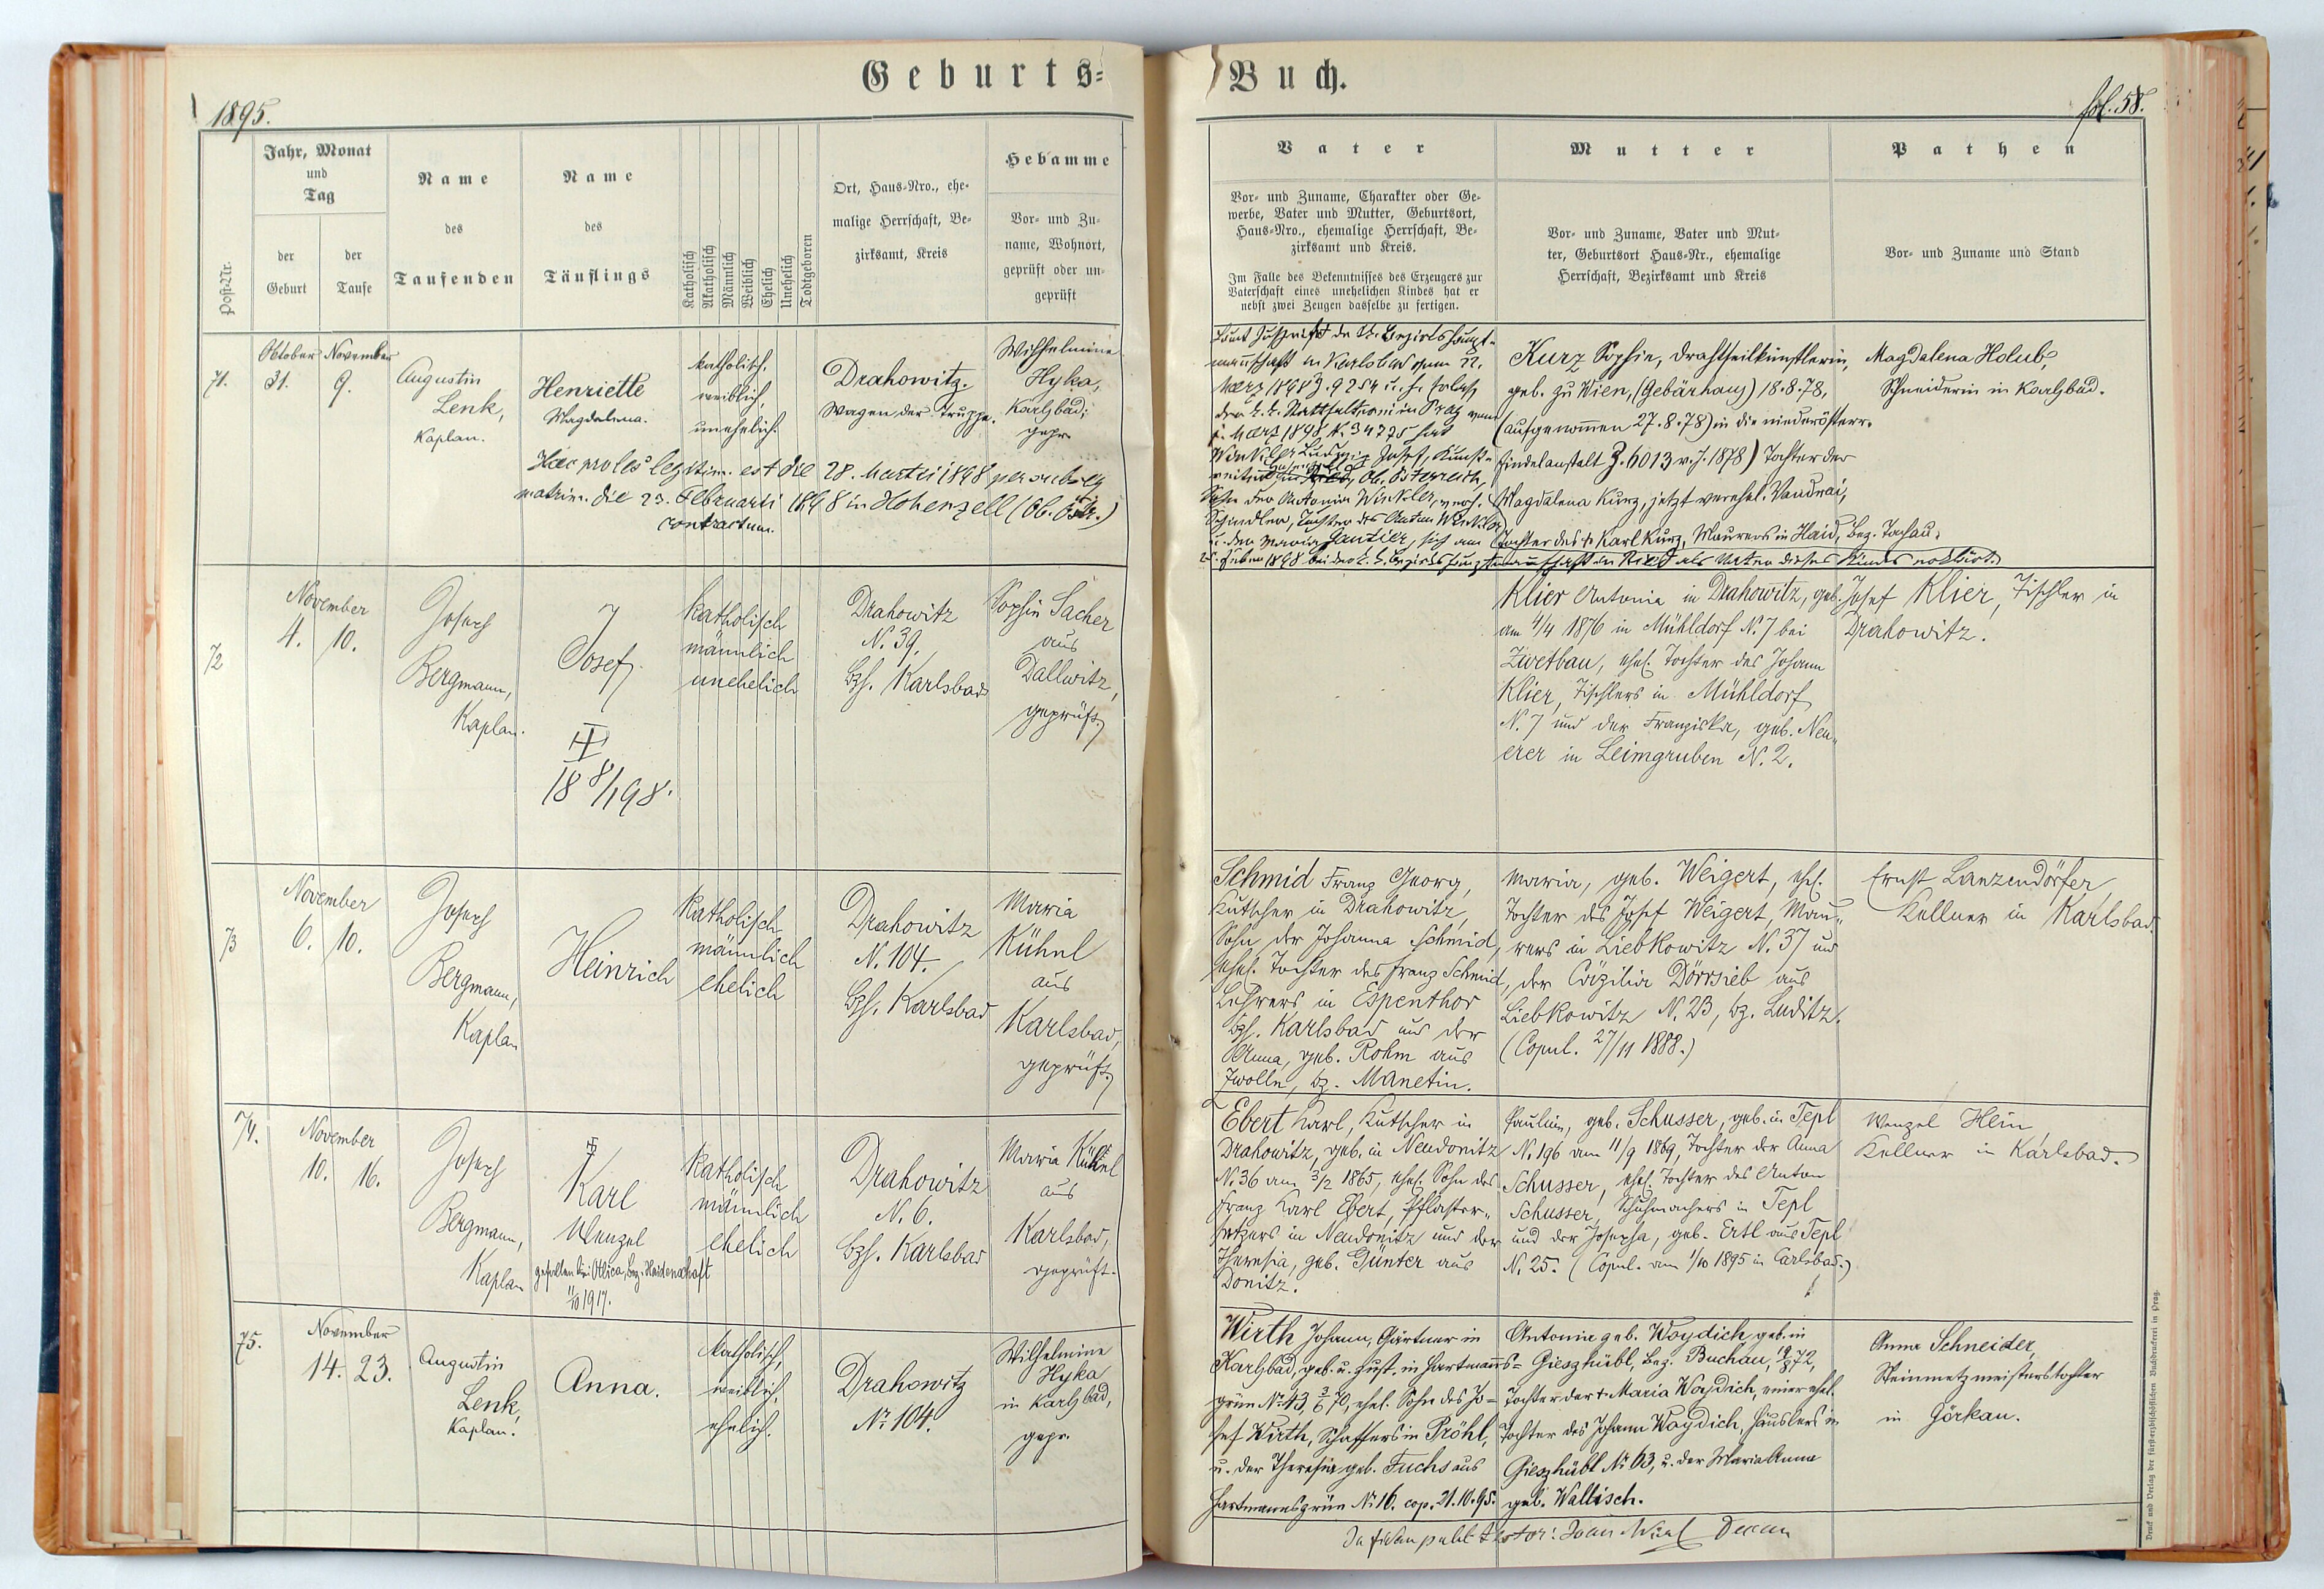 Geburts-
Buch.
1895.
fol. 58.
Post-Nr.
Jahr, Monat
und
Tag
der
Geburt
der
Taufe
Name
des
Taufenden
Name
des
Täuflings
Katholisch
Akatholisch
Männlich
Weiblich
Ehelich
Unehelich
Todtgeboren
Ort, Haus-Nro., ehe-
malige Herrschaft, Be-
zirksamt, Kreis
Hebamme
Vor- und Zu-
name, Wohnort,
geprüft oder un-
geprüft
Vater
Vor- und Zuname, Charakter oder Ge-
werbe, Vater und Mutter, Geburtsort,
Haus-Nro., ehemalige Herrschaft, Be-
zirksamt und Kreis.
Im Falle des Bekenntnisses des Erzeugers zur
Vaterschaft eines unehelichen Kindes hat er
nebst zwei Zeugen dasselbe zu fertigen.
Mutter
Vor- und Zuname, Vater und Mut-
ter, Geburtsort Haus-Nr., ehemalige
Herrschaft, Bezirksamt und Kreis
Pathen
Vor- und Zuname und Stand
71.
Oktober
31.
November
9.
Augustin
Lenk,
Kaplan.
Henriette
Magdalena.
katholisch,
weiblich,
unehelich.
Drahowitz.
Wagen der Truppe.
Wilhelmine
Hyka,
Karlsbad;
gepr.
Haec proles legitim. est die 28. Martii 1898 per subseq
matrim. die 23. Februarii 1898 in Hohenzell (Ob. Östr.)
contractum.
Laut Zuschrift der k. k. Bezirkshaupt-
mannschaft in Karlsbad vom 22.
März 1898 Z. 9254 u. h. Erlaß
der k. k. Statthalterei in Prag vom
März 1898 N. 34775 hat
Winkler Ludwig Josef, Kunst-
Ob. Österreich,
Sohn der Antonia Winkler, verh.
Schindler, Tochter des Anton Winkler
u. der Maria Gantier, sich am
25. Feber 1898 bei der k. k. Bezirkshauptmannschaft in Ried als Vater dieses Kindes erklärt.
Kurz Sophie, Drahtseilkünstlerin,
geb. zu Wien, (Gebärhaus) 18.8.78,
(aufgenommen 27.8.78) in die niederösterr.
Findelanstalt Z. 6013 v. J. 1878) Tochter der
Magdalena Kurz, jetzt verehel. Vandrei,
Tochter des † Karl Kurz, Maurers in Haid, Bez. Tachau.
Magdalena Holub,
Schneiderin in Karlsbad.
72
November
4. 10.
Josef
Bergmann,
Kaplan.
Josef
†
18 8/1 98.
katholisch
männlich
unehelich
Drahowitz
N. 39.
Bzh. Karlsbad
Sophie Sacher
aus
Dallwitz,
geprüft
Klier Antonia in Drahowitz, geb.
am 4/4 1876 in Mühldorf N. 7 bei
Zwetbau, ehel. Tochter des Johann
Klier, Tischlers in Mühldorf
N. 7 und der Franziska, geb. Neu-
erer in Leimgruben N. 2.
Josef Klier, Tischler in
Drahowitz.
73
November
6. 10.
Josef
Bergmann,
Kaplan
Heinrich
katholisch
männlich
ehelich
Drahowitz
N. 104.
Bzh. Karlsbad
Maria
Kühnl
aus
Karlsbad,
geprüft
Schmid Franz Georg,
Kutscher in Drahowitz,
Sohn der Johanna Schmid,
ehel. Tochter des Franz Schmid,
Lehrers in Espenthor
Bzh. Karlsbad und der
Anna, geb. Rohm aus
Zwolln, Bz. Manetin.
Maria, geb. Weigert, ehel.
Tochter des Josef Weigert, Mau-
rers in Liebkowitz N. 37 und
der Cäzilia Dörrsieb aus
Liebkowitz N. 23, bz. Luditz.
(Copul. 27/11 1888.)
Ernst Lanzendörfer,
Kellner in Karlsbad.
74.
November
10. 16.
Josef
Bergmann,
Kaplan
†
Karl
Wenzel
gefallen bei Otlica, bez. Haidenschaft
11/10 1917.
katholisch
männlich
ehelich
Drahowitz
N. 6.
bzh. Karlsbad
Maria Kühnl
aus
Karlsbad,
geprüft.
Ebert Karl, Kutscher in
Drahowitz, geb. in Neudonitz
N. 36 am 3/2 1865, ehel. Sohn des
Franz Karl Ebert, Pflaster-
setzers in Neudonitz und der
Theresia, geb. Günter aus
Donitz.
Pauline, geb. Schusser, geb. in Tepl
N. 196 am 11/9 1869, Tochter der Anna
Schusser, ehel. Tochter des Anton
Schusser, Schuhmachers in Tepl
und der Josepha, geb. Ertl aus Tepl
N. 25. (Copul. am 1/10 1895 in Carlsbad.)
Wenzel Hein,
Kellner in Karlsbad.
75.
November
14. 23.
Augustin
Lenk,
Kaplan.
Anna.
katholisch,
weiblich,
ehelich.
Drahowitz
Nr. 104.
Wilhelmine
Hyka
in Karlsbad,
gepr.
Wirth Johann, Gärtner in
Karlsbad, geb. u. zust. in Hartmanns-
grün Nr. 43, 3/6 70, ehel. Sohn des Jo-
sef Wirth, Schaffers in Pröhl,
u. der Theresia geb. Fuchs aus
Hartmannsgrün Nr. 16. cop. 21.10.95.
Antonia geb. Woydich, geb. in
Gieszhübl, Bez. Buchau, 19/8 72,
Tochter der † Maria Woydich, einer ehel.
Tochter des Johann Woydich, Häuslers in
Gieszhübl Nr. 63, u. der Maria Anna
geb. Wallisch.
Anna Schneider,
Steinmetzmeisterstochter
in Görkau.
Druck und Verlag der fürsterzbischöflichen Buchdruckerei in Prag.